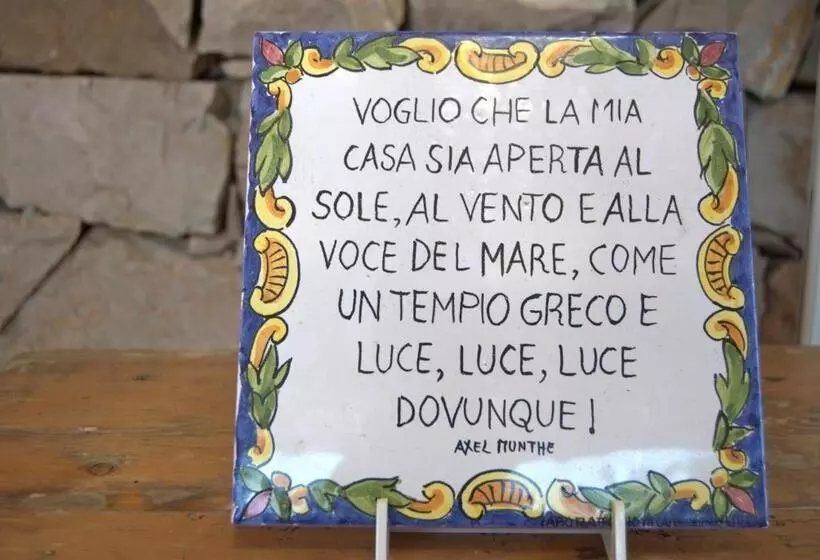 VOGLIO CHE LA MIA
CASA SIA APERTA AL
SOLE, AL VENTO E ALLA
VOCE DEL MARE, COME
UN TEMPIO GRECO E
LUCE, LUCE, LUCE
DOVUNQUE!
AXEL MUNTHE